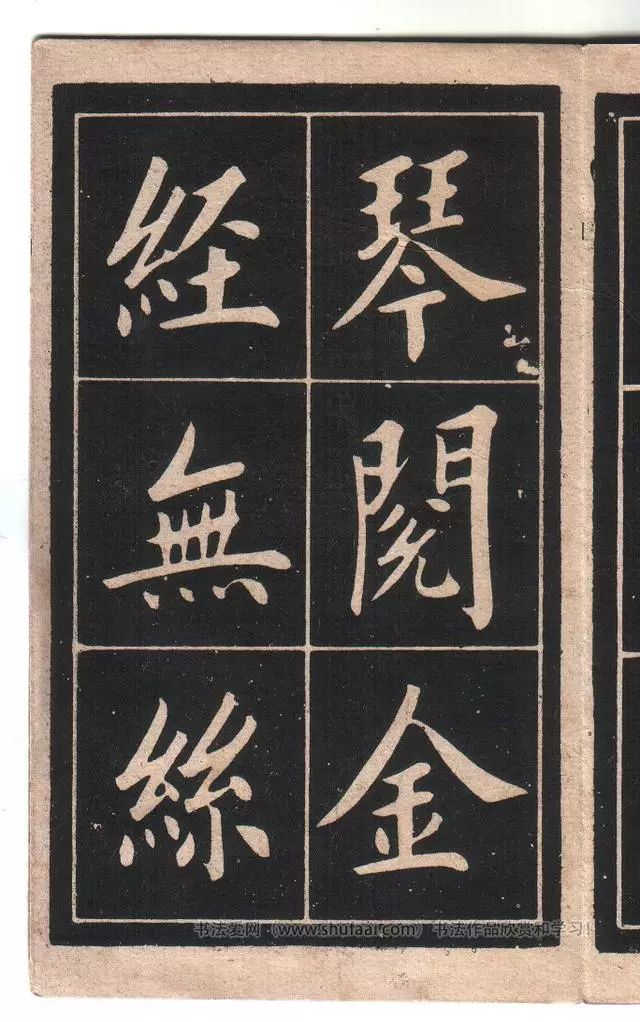 琴閱金
經無絲
书法爱网（www.shufaai.com）书法作品欣赏和学习！